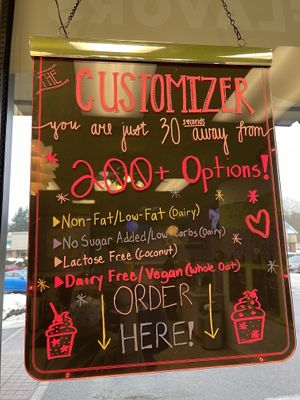 FLAVORS
THE
CUSTOMIZER
you are just 30 seconds away from
200+ Options!
Non-Fat/Low-Fat (Dairy)
No Sugar Added/Low Carbs (Dairy)
Lactose Free (Coconut)
Dairy Free/Vegan (Whole Oat)
ORDER
HERE!